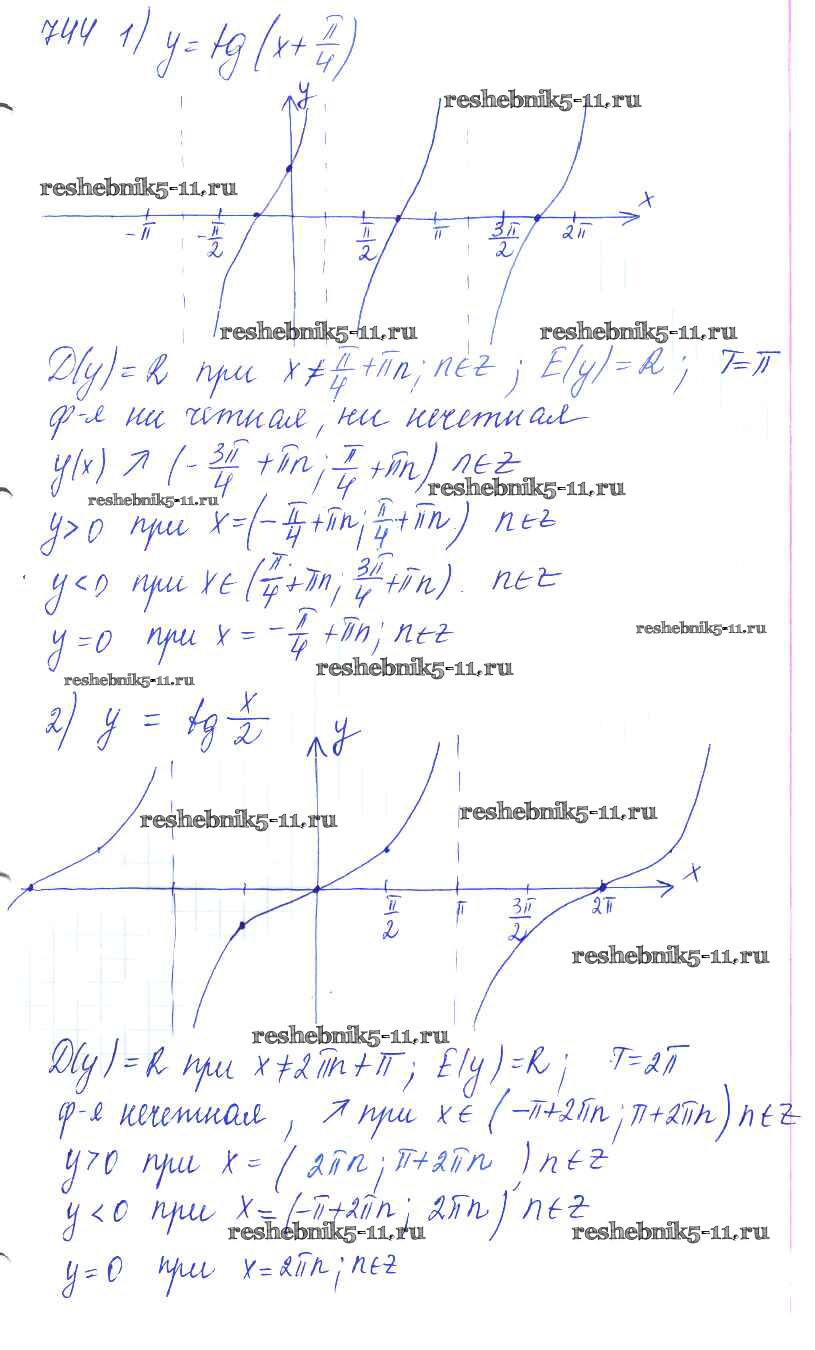 744 1) y = tg (x + π/4)
y
reshebnik5-11.ru
reshebnik5-11.ru
x
-π -π/2 π/2 π 3π/2 2π
reshebnik5-11.ru reshebnik5-11.ru
D(y) = R при x ≠ π/4 + πn; n∈Z ; E(y) = R ; T = π
ф-я ни четная, ни нечетная
y(x) ↗ (-3π/4 + πn; π/4 + πn) n∈Z
reshebnik5-11.ru
reshebnik5-11.ru
y > 0 при x = (-π/4 + πn; π/4 + πn) n∈Z
y < 0 при x ∈ (π/4 + πn; 3π/4 + πn). n∈Z
reshebnik5-11.ru
y = 0 при x = -π/4 + πn; n∈Z
reshebnik5-11.ru
reshebnik5-11.ru
2) y = tg x/2
y
reshebnik5-11.ru reshebnik5-11.ru
x
π/2 π 3π/2 2π
reshebnik5-11.ru
reshebnik5-11.ru
D(y) = R при x ≠ 2πn + π ; E(y) = R ; T = 2π
ф-я нечетная, ↗ при x ∈ (-π + 2πn; π + 2πn) n∈Z
y > 0 при x = (2πn; π + 2πn) n∈Z
y < 0 при x = (-π + 2πn; 2πn) n∈Z
reshebnik5-11.ru reshebnik5-11.ru
y = 0 при x = 2πn; n∈Z